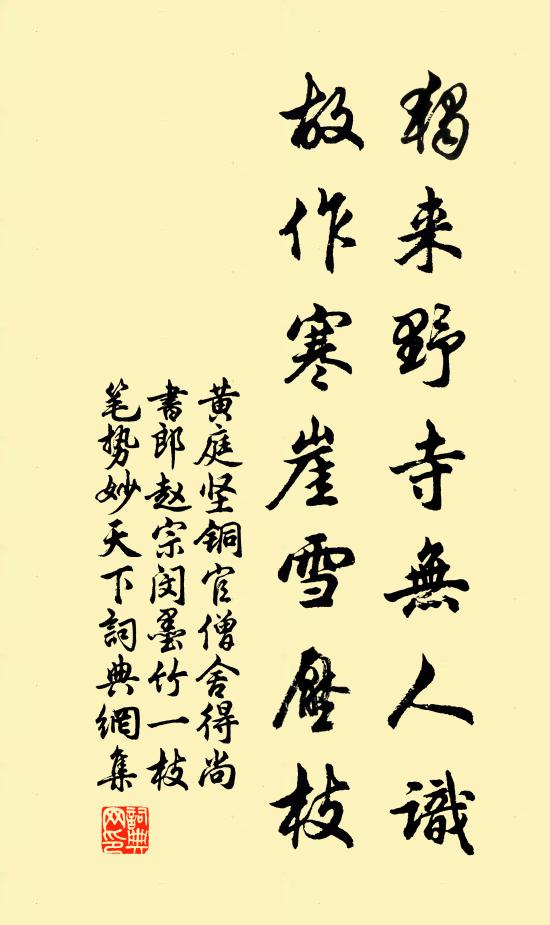 獨来野寺無人識
故作寒崖雪壓枝
黄庭坚铜官僧舍得尚
書郎赵宗闵墨竹一枝
笔势妙天下詞典網集
詞典
网印